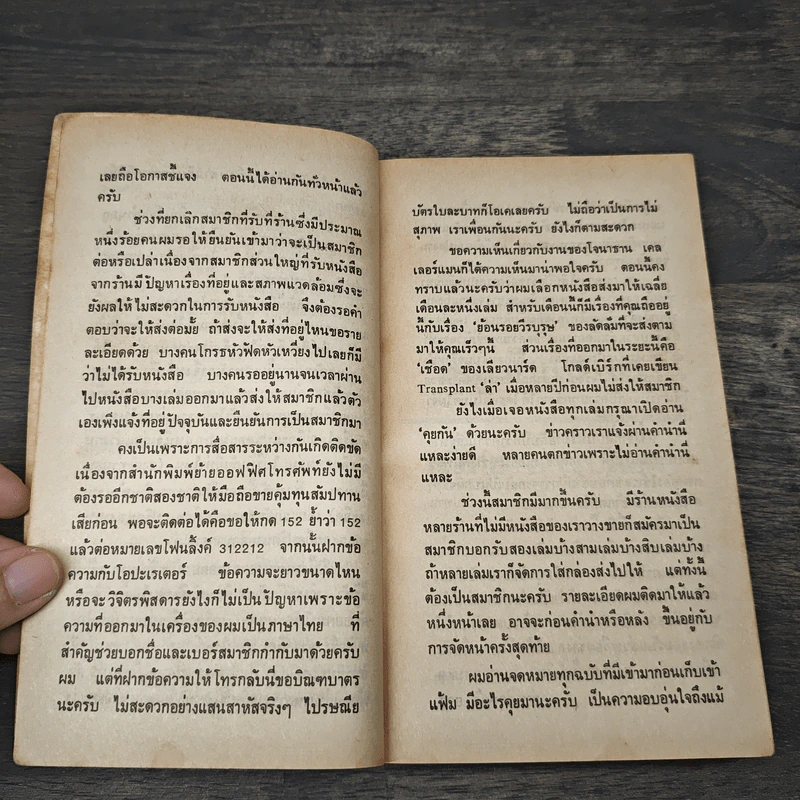 เลยถือโอกาสชี้แจง ตอนนี้ได้อ่านกันทั่วหน้าแล้ว
ครับ
ช่วงที่ยกเลิกสมาชิกที่รับที่ร้านซึ่งมีประมาณ
หนึ่งร้อยคนผมรอให้ยืนยันเข้ามาว่าจะเป็นสมาชิก
ต่อหรือเปล่าเนื่องจากสมาชิกส่วนใหญ่ที่รับหนังสือ
จากร้านมีปัญหาเรื่องที่อยู่และสภาพแวดล้อมซึ่งจะ
ยังผลให้ไม่สะดวกในการรับหนังสือ จึงต้องรอคำ
ตอบว่าจะให้ส่งต่อมั้ย ถ้าส่งจะให้ส่งที่อยู่ไหนขอราย
ละเอียดด้วย บางคนโกรธหัวฟัดหัวเหวี่ยงไปเลยก็มี
ว่าไม่ได้รับหนังสือ บางคนรออยู่นานจนเวลาผ่าน
ไปหนังสือบางเล่มออกมาแล้วส่งให้สมาชิกแล้วตัว
เองเพิ่งแจ้งที่อยู่ปัจจุบันและยืนยันการเป็นสมาชิกมา
คงเป็นเพราะการสื่อสารระหว่างกันเกิดติดขัด
เนื่องจากสำนักพิมพ์ย้ายออฟฟิศโทรศัพท์ยังไม่มี
ต้องรออีกชาติสองชาติให้มือถือขายคุ้มทุนสัมปทาน
เสียก่อน พอจะติดต่อได้คือขอให้กด 152 ย้ำว่า 152
แล้วต่อหมายเลขโฟนลิ้งค์ 312212 จากนั้นฝากข้อ
ความกับโอปะเรเตอร์ ข้อความจะยาวขนาดไหน
หรือจะวิจิตรพิสดารยังไงก็ไม่เป็นปัญหาเพราะข้อ
ความที่ออกมาในเครื่องของผมเป็นภาษาไทย ที่
สำคัญช่วยบอกชื่อและเบอร์สมาชิกกำกับมาด้วยครับ
ผม แต่ที่ฝากข้อความให้โทรกลับนี่ขอบิณฑบาตร
นะครับ ไม่สะดวกอย่างแสนสาหัสจริงๆ ไปรษณีย
บัตรใบละบาทก็โอเคเลยครับ ไม่ถือว่าเป็นการไม่
สุภาพ เราเพื่อนกันนะครับ ยังไงก็ตามสะดวก
ขอความเห็นเกี่ยวกับงานของโจนาธาน เคล
เลอร์แมนก็ได้ความเห็นมาน่าพอใจครับ ตอนนี้คง
ทราบแล้วนะครับว่าผมเลือกหนังสือส่งมาให้เฉลี่ย
เดือนละหนึ่งเล่ม สำหรับเดือนนี้ก็มีเรื่องที่คุณถืออยู่
นี้กับเรื่อง 'ย้อนรอยวีรบุรุษ' ของลัดลัมที่จะส่งตาม
มาให้คุณเร็วๆนี้ ส่วนเรื่องที่ออกมาในระยะนี้คือ
'เชือด' ของเลียวนาร์ด โกลด์เบิร์กที่เคยเขียน
Transplant 'ล่า' เมื่อหลายปีก่อนผมไม่ส่งให้สมาชิก
ยังไงเมื่อเจอหนังสือทุกเล่มกรุณาเปิดอ่าน
'คุยกัน' ด้วยนะครับ ข่าวคราวเราแจ้งผ่านคำนำนี่
แหละง่ายดี หลายคนตกข่าวเพราะไม่อ่านคำนำนี่
แหละ
ช่วงนี้สมาชิกมีมากขึ้นครับ มีร้านหนังสือ
หลายร้านที่ไม่มีหนังสือของเราวางขายก็สมัครมาเป็น
สมาชิกบอกรับสองเล่มบ้างสามเล่มบ้างสิบเล่มบ้าง
ถ้าหลายเล่มเราก็จัดการใส่กล่องส่งไปให้ แต่ทั้งนี้
ต้องเป็นสมาชิกนะครับ รายละเอียดผมติดมาให้แล้ว
หนึ่งหน้าเลย อาจจะก่อนคำนำหรือหลัง ขึ้นอยู่กับ
การจัดหน้าครั้งสุดท้าย
ผมอ่านจดหมายทุกฉบับที่มีเข้ามาก่อนเก็บเข้า
แฟ้ม มีอะไรคุยมานะครับ เป็นความอบอุ่นใจถึงแม้